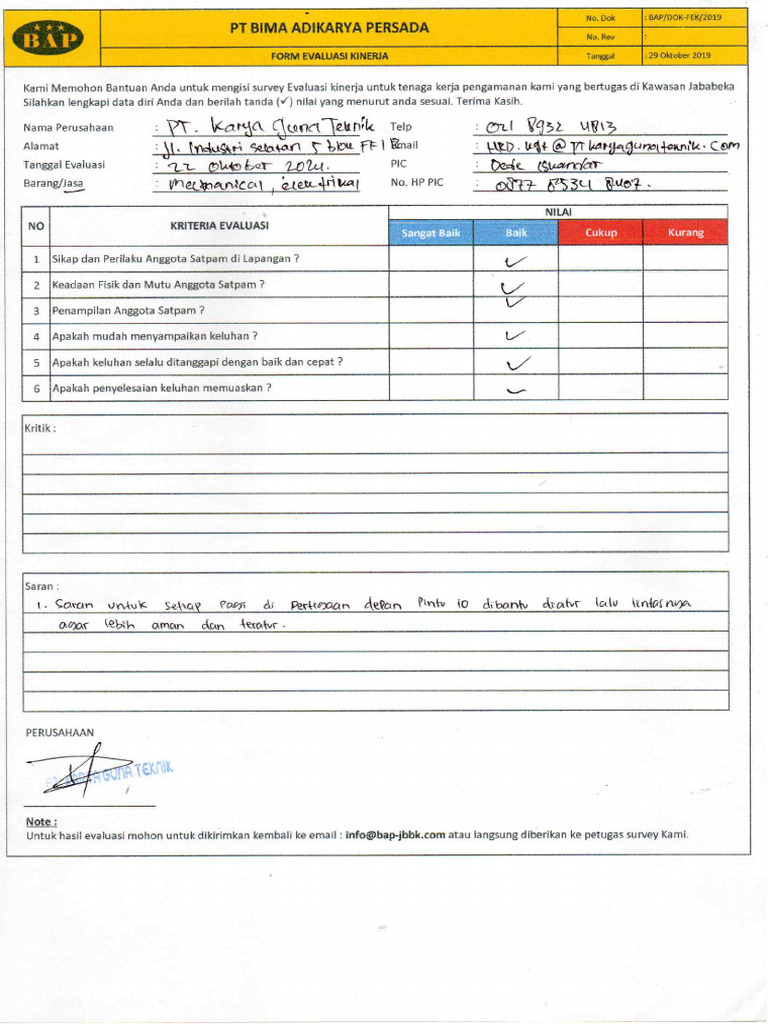 BAP
PT BIMA ADIKARYA PERSADA
FORM EVALUASI KINERJA
No. Dok : BAP/DOK-FEK/2019
No. Rev :
Tanggal : 29 Oktober 2019
Kami Memohon Bantuan Anda untuk mengisi survey Evaluasi kinerja untuk tenaga kerja pengamanan kami yang bertugas di Kawasan Jababeka
Silahkan lengkapi data diri Anda dan berilah tanda (✓) nilai yang menurut anda sesuai. Terima Kasih.
Nama Perusahaan : PT. Karya Guna Teknik Telp : 021 8932 4813
Alamat : Jl. Industri Selatan 5 blok FF 1 Email : HRD.kgt@ptkaryagunateknik.com
Tanggal Evaluasi : 22 Oktober 2024. PIC : Dede Iskandar
Barang/Jasa : Mechanical, elektrikal No. HP PIC : 0877 8534 8407.
NO KRITERIA EVALUASI NILAI
Sangat Baik Baik Cukup Kurang
1 Sikap dan Perilaku Anggota Satpam di Lapangan ? ✓
2 Keadaan Fisik dan Mutu Anggota Satpam ? ✓
3 Penampilan Anggota Satpam ? ✓
4 Apakah mudah menyampaikan keluhan ? ✓
5 Apakah keluhan selalu ditanggapi dengan baik dan cepat ? ✓
6 Apakah penyelesaian keluhan memuaskan ? ✓
Kritik :
Saran :
1. Saran untuk setiap pagi di pertigaan depan Pintu 10 dibantu diatur lalu lintasnya
agar lebih aman dan teratur.
PERUSAHAAN
GUNA TEKNIK
Note :
Untuk hasil evaluasi mohon untuk dikirimkan kembali ke email : info@bap-jbbk.com atau langsung diberikan ke petugas survey Kami.